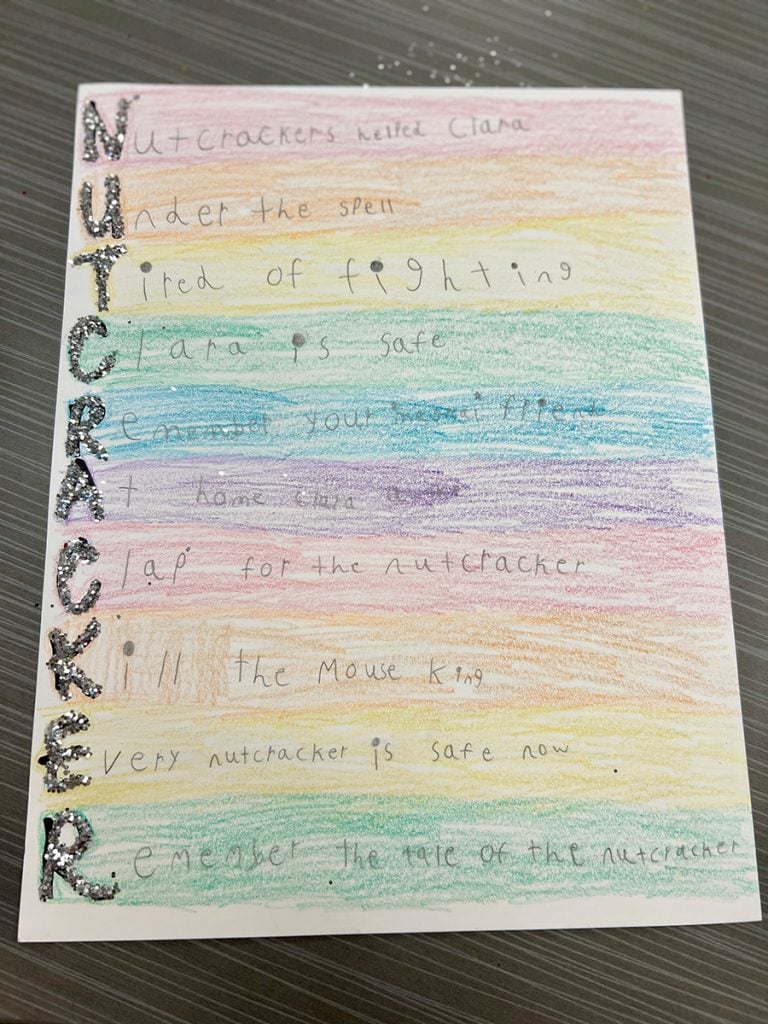 Nutcrackers helled Clara
Under the spell
Tired of fighting
Clara is safe
Remember your friend
At home Clara
Clap for the nutcracker
Kill the Mouse King
Every nutcracker is safe now
Remember the tale of the nutcracker